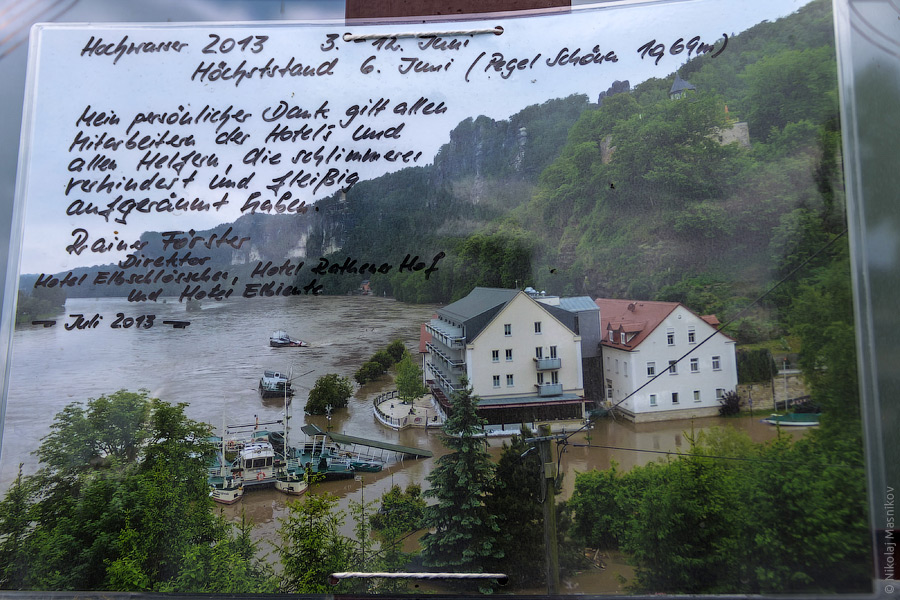 Hochwasser 2013 3. - 12. Juni
Höchststand 6. Juni (Pegel Schöna 10,69m)
Mein persönlicher Dank gilt allen
Mitarbeitern der Hotels und
allen Helfern, die schlimmeres
verhindert und fleißig
aufgeräumt haben.
Rainer Förster
Direktor
Hotel Elbschlösschen, Hotel Rathener Hof
und Hotel Elbiente
- Juli 2013 -
© Nikolaj Masnikov